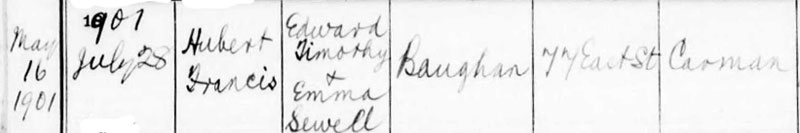 May
16
1901
1901
July 28
Hubert
Francis
Edward
Timothy
+
Emma
Sewell
Baughan
77 East St
Carman